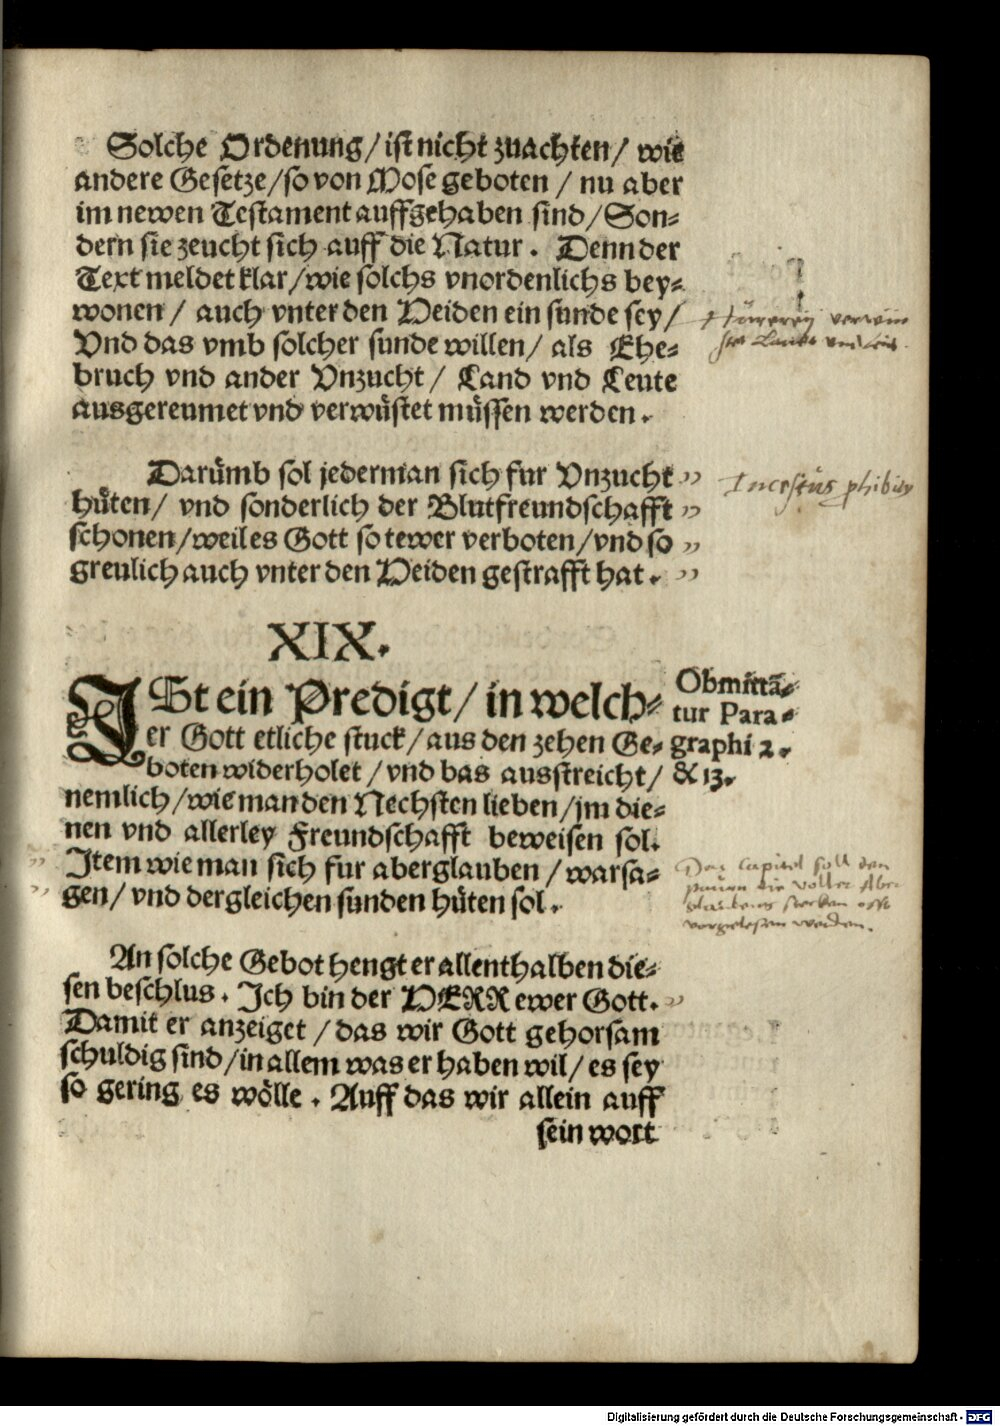 Solche Ordenung/ist nicht zuachten/ wie
andere Gesetze/so von Mose geboten / nu aber
im newen Testament auffgehaben sind/Son⸗
dern sie zeucht sich auff die Natur. Denn der
Text meldet klar/wie solchs vnordenlichs bey⸗
wonen / auch vnter den Heiden ein sunde sey/
Vnd das vmb solcher sunde willen/ als Ehe⸗
bruch vnd ander Vnzucht/ Land vnd Leute
ausgereumet vnd verwüstet müssen werden.
Hürerey verwü
ste Lande vnd Leüt.
Darümb sol jederman sich fur Vnzucht
hüten/ vnd sonderlich der Blutfreundschafft
schonen/weil es Gott so tewer verboten/vnd so
greulich auch vnter den Heiden gestrafft hat.
Incestus
XIX.
ISt ein Predigt/ in welch⸗
er Gott etliche stuck/aus den zehen Ge⸗
boten widerholet/vnd bas ausstreicht/
nemlich/wie man den Nechsten lieben/jm die⸗
nen vnd allerley Freundschafft beweisen sol.
Item wie man sich fur aberglauben/warsa⸗
gen/vnd dergleichen sunden hüten sol.
Obmittã⸗
tur Para⸗
graphi 2.
& 13.
Capitel soll den
die voller Aber
glaubens stecken offt
vorgelesen werden.
An solche Gebot hengt er allenthalben die⸗
sen beschlus. Ich bin der HERR ewer Gott.
Damit er anzeiget/das wir Gott gehorsam
schuldig sind/in allem was er haben wil/es sey
so gering es wölle. Auff das wir allein auff
sein wort
Digitalisierung gefördert durch die Deutsche Forschungsgemeinschaft - DFG